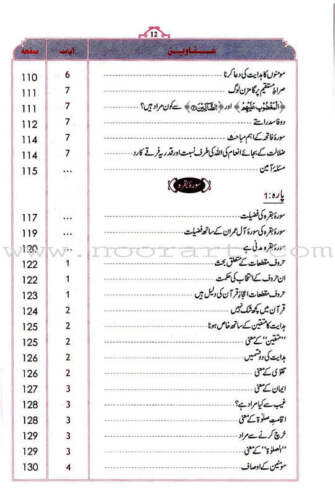 12
عناوین آیات صفحہ
مومنوں کا ہدایت کی دعا کرنا 6 110
صراط مستقیم پر گامزن لوگ 7 111
﴿الْمَغْضُوبِ عَلَيْهِمْ﴾ اور ﴿الضَّالِّينَ﴾ سے کون مراد ہیں؟ 7 111
دو فاسد راستے 7 112
سورۂ فاتحہ کے اہم مباحث 7 114
ضلالت کے بجائے انعام کی اللہ کی طرف نسبت اور قدریہ فرقے کا رد 7 114
مسئلہ آمین ... 115
سورۂ بقرہ
پارہ: 1
سورۂ بقرہ کی فضیلت ... 117
سورۂ بقرہ کی سورۂ آل عمران کے ساتھ فضیلت ... 119
سورۂ بقرہ مدنی ہے ... 120
www.noorart.com
حروف مقطعات کے متعلق بحث 1 122
ان حروف کے انتخاب کی حکمت 1 122
حروف مقطعات اعجاز قرآن کی دلیل ہیں 1 123
قرآن میں کچھ شک نہیں 2 124
ہدایت کا متقین کے ساتھ خاص ہونا 2 125
"متقین" کے معنی 2 125
ہدایت کی دو قسمیں 2 126
تقویٰ کے معنی 2 126
ایمان کے معنی 3 127
غیب سے کیا مراد ہے؟ 3 128
اقامت صلوٰۃ کے معنی 3 128
خرچ کرنے سے مراد 3 129
"الصلوٰۃ" کے معنی 3 129
مومنین کے اوصاف 4 130